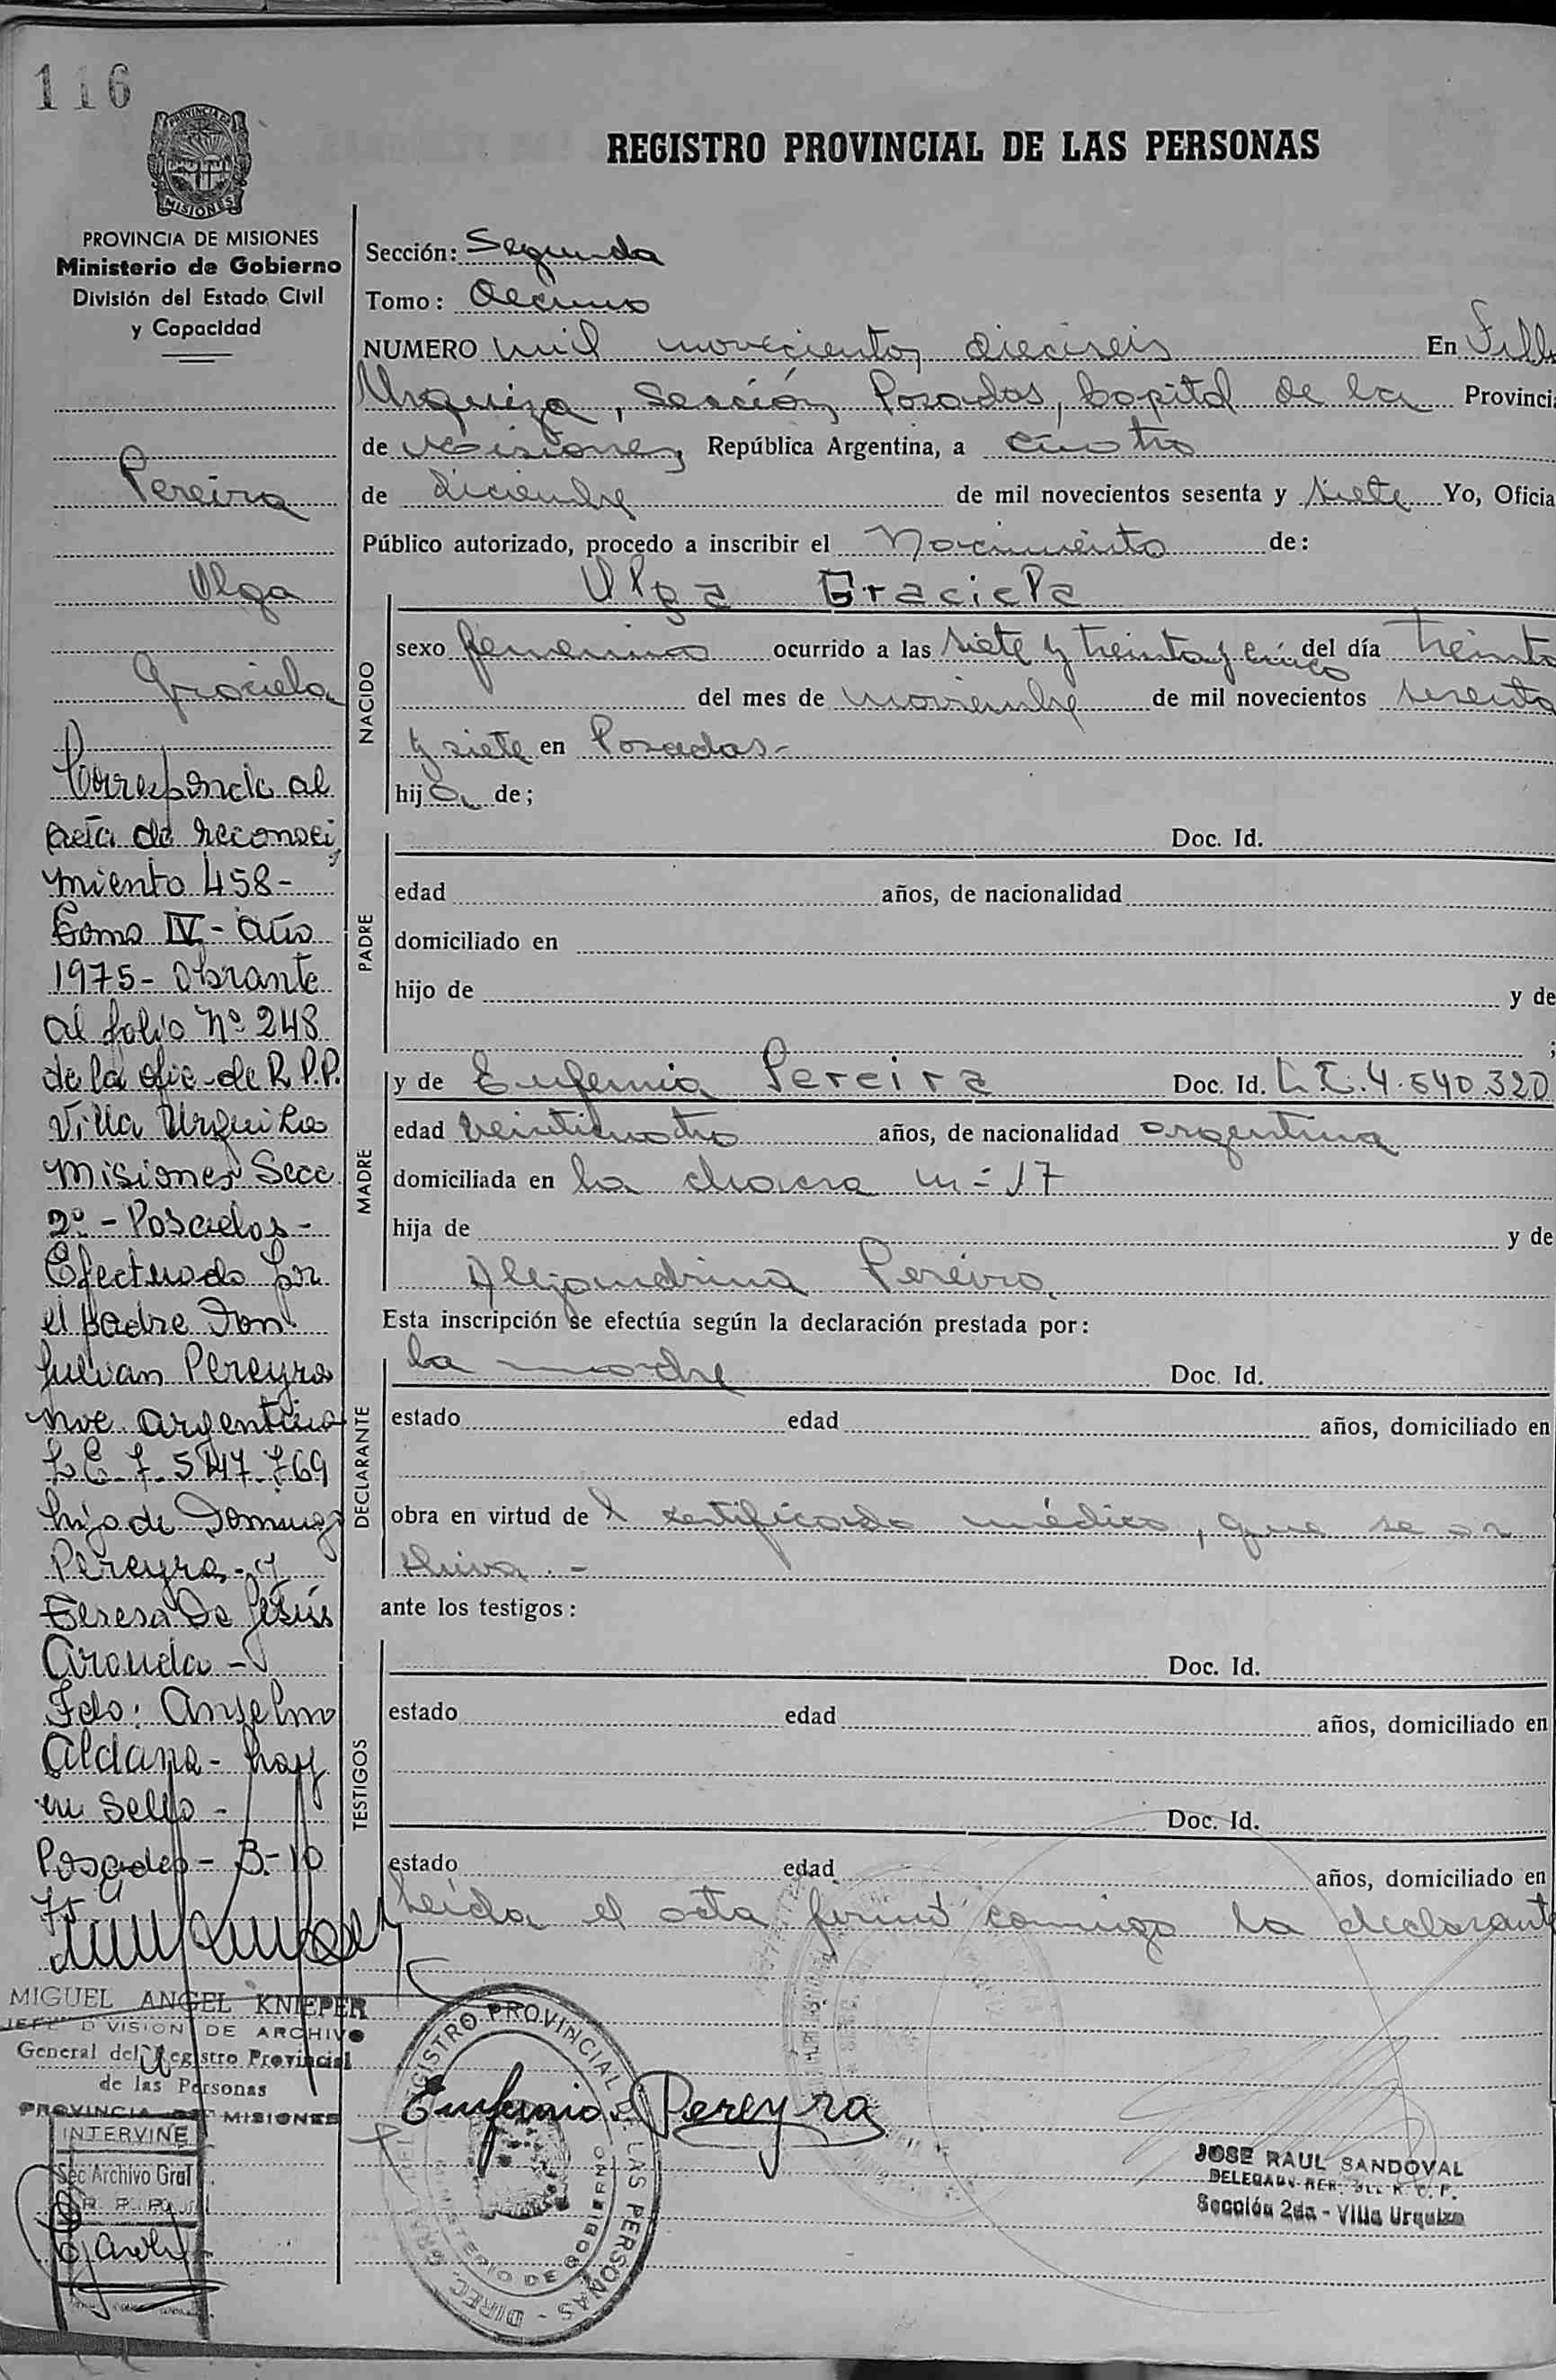 116
PROVINCIA DE
MISIONES
REGISTRO PROVINCIAL DE LAS PERSONAS
PROVINCIA DE MISIONES
Ministerio de Gobierno
División del Estado Civil
y Capacidad
Pereira
Olga
Graciela
Corresponde al
acta de reconoci
miento 458-
Tomo IV- año
1975- Obrante
al folio Nº 248
de la ofic-de R.P.P.
Villa Urquiza
Misiones Secc
2º - Posadas -
Efectuado por
el padre Don
Julian Pereyra
nac. argentino
L E 7.547.769
hijo de Domingo
Pereyra - y
Teresa De Jesús
Aranda -
Fdo: Anselmo
Aldana - hay
un sello -
Posadas - 3-10
75
MIGUEL ANGEL KNIEPER
JEFE DIVISION DE ARCHIVO
General del Registro Provincial
de las Personas
PROVINCIA DE MISIONES
INTERVINE
Sec Archivo Gral
R. P. P.
Sección: Segunda
Tomo: Décimo
NUMERO mil novecientos dieciseis En Villa
Urquiza, Sección, Posadas, Capital de la Provincia
de Misiones, República Argentina, a cuatro
de diciembre de mil novecientos sesenta y siete Yo, Oficia
Público autorizado, procedo a inscribir el Nacimiento de:
NACIDO
Olga Graciela
sexo femenino ocurrido a las siete y treinta y cinco del día treinta
del mes de noviembre de mil novecientos sesenta
y siete en Posadas.-
hija de;
PADRE
Doc. Id.
edad años, de nacionalidad
domiciliado en
hijo de y de
;
MADRE
y de Eufemia Pereira Doc. Id. L.C. 4.540.320
edad veinticuatro años, de nacionalidad argentina
domiciliada en la chacra nº 17
hija de y de
Alejandrina Pereira.
Esta inscripción se efectúa según la declaración prestada por:
DECLARANTE
la madre Doc. Id.
estado edad años, domiciliado en
obra en virtud del certificado médico, que se ar
chiva.-
ante los testigos:
TESTIGOS
Doc. Id.
estado edad años, domiciliado en
Doc. Id.
estado edad años, domiciliado en
Leída el acta firmó conmigo la declarante
REGISTRO PROVINCIAL DE LAS PERSONAS - DIREC. GRAL DEL
MINISTERIO DE GOBIERNO
Eufemia Pereyra
JOSE RAUL SANDOVAL
Sección 2da - Villa Urquiza